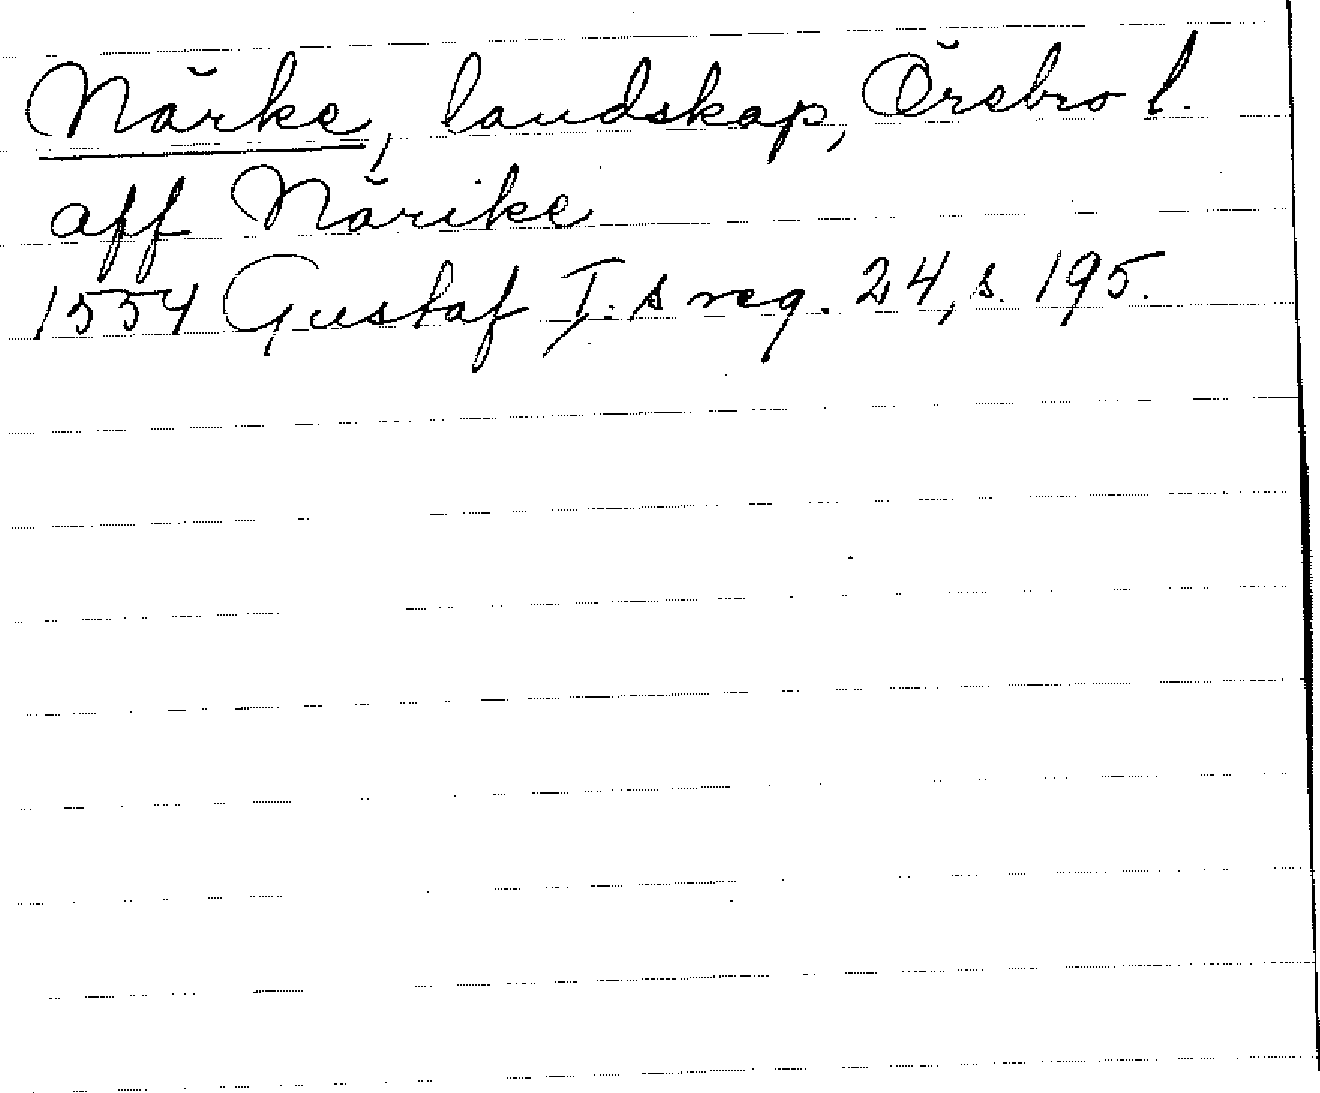 Närke, landskap, Örebro l.
aff Närike
1554 Gustaf I.s reg. 24, s. 195.